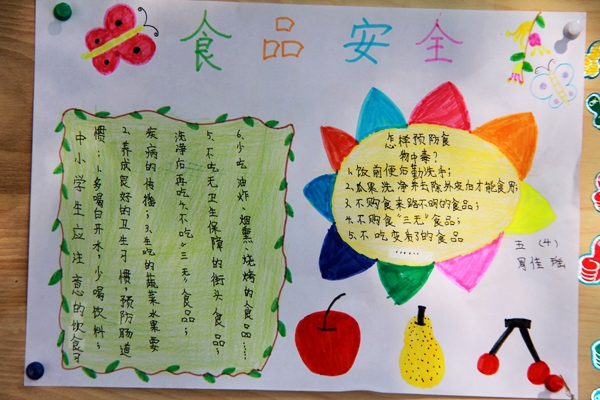 食品安全
中小学生应注意的饮食习
惯:1.多喝白开水,少喝饮料;
2.养成良好的卫生习惯,预防肠道
疾病的传播;3.生吃的蔬菜水果要
洗净后再吃;4.不吃"三无"食品;
5.不吃无卫生保障的街头食品;
6.少吃油炸、烟熏、烧烤的食品……
怎样预防食
物中毒?
1.饮前便后勤洗手;
2.瓜果洗净并去除外皮后才能食用;
3.不购食来路不明的食品;
4.不购食"三无"食品;
5.不吃变了的食品
……
五(4)
周佳瑶